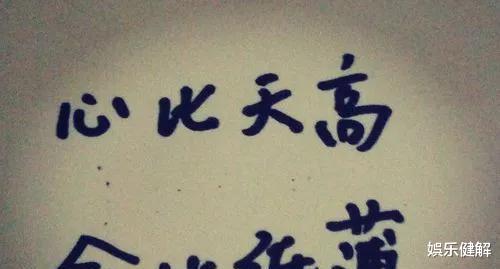 心比天高
薄
娱乐健解